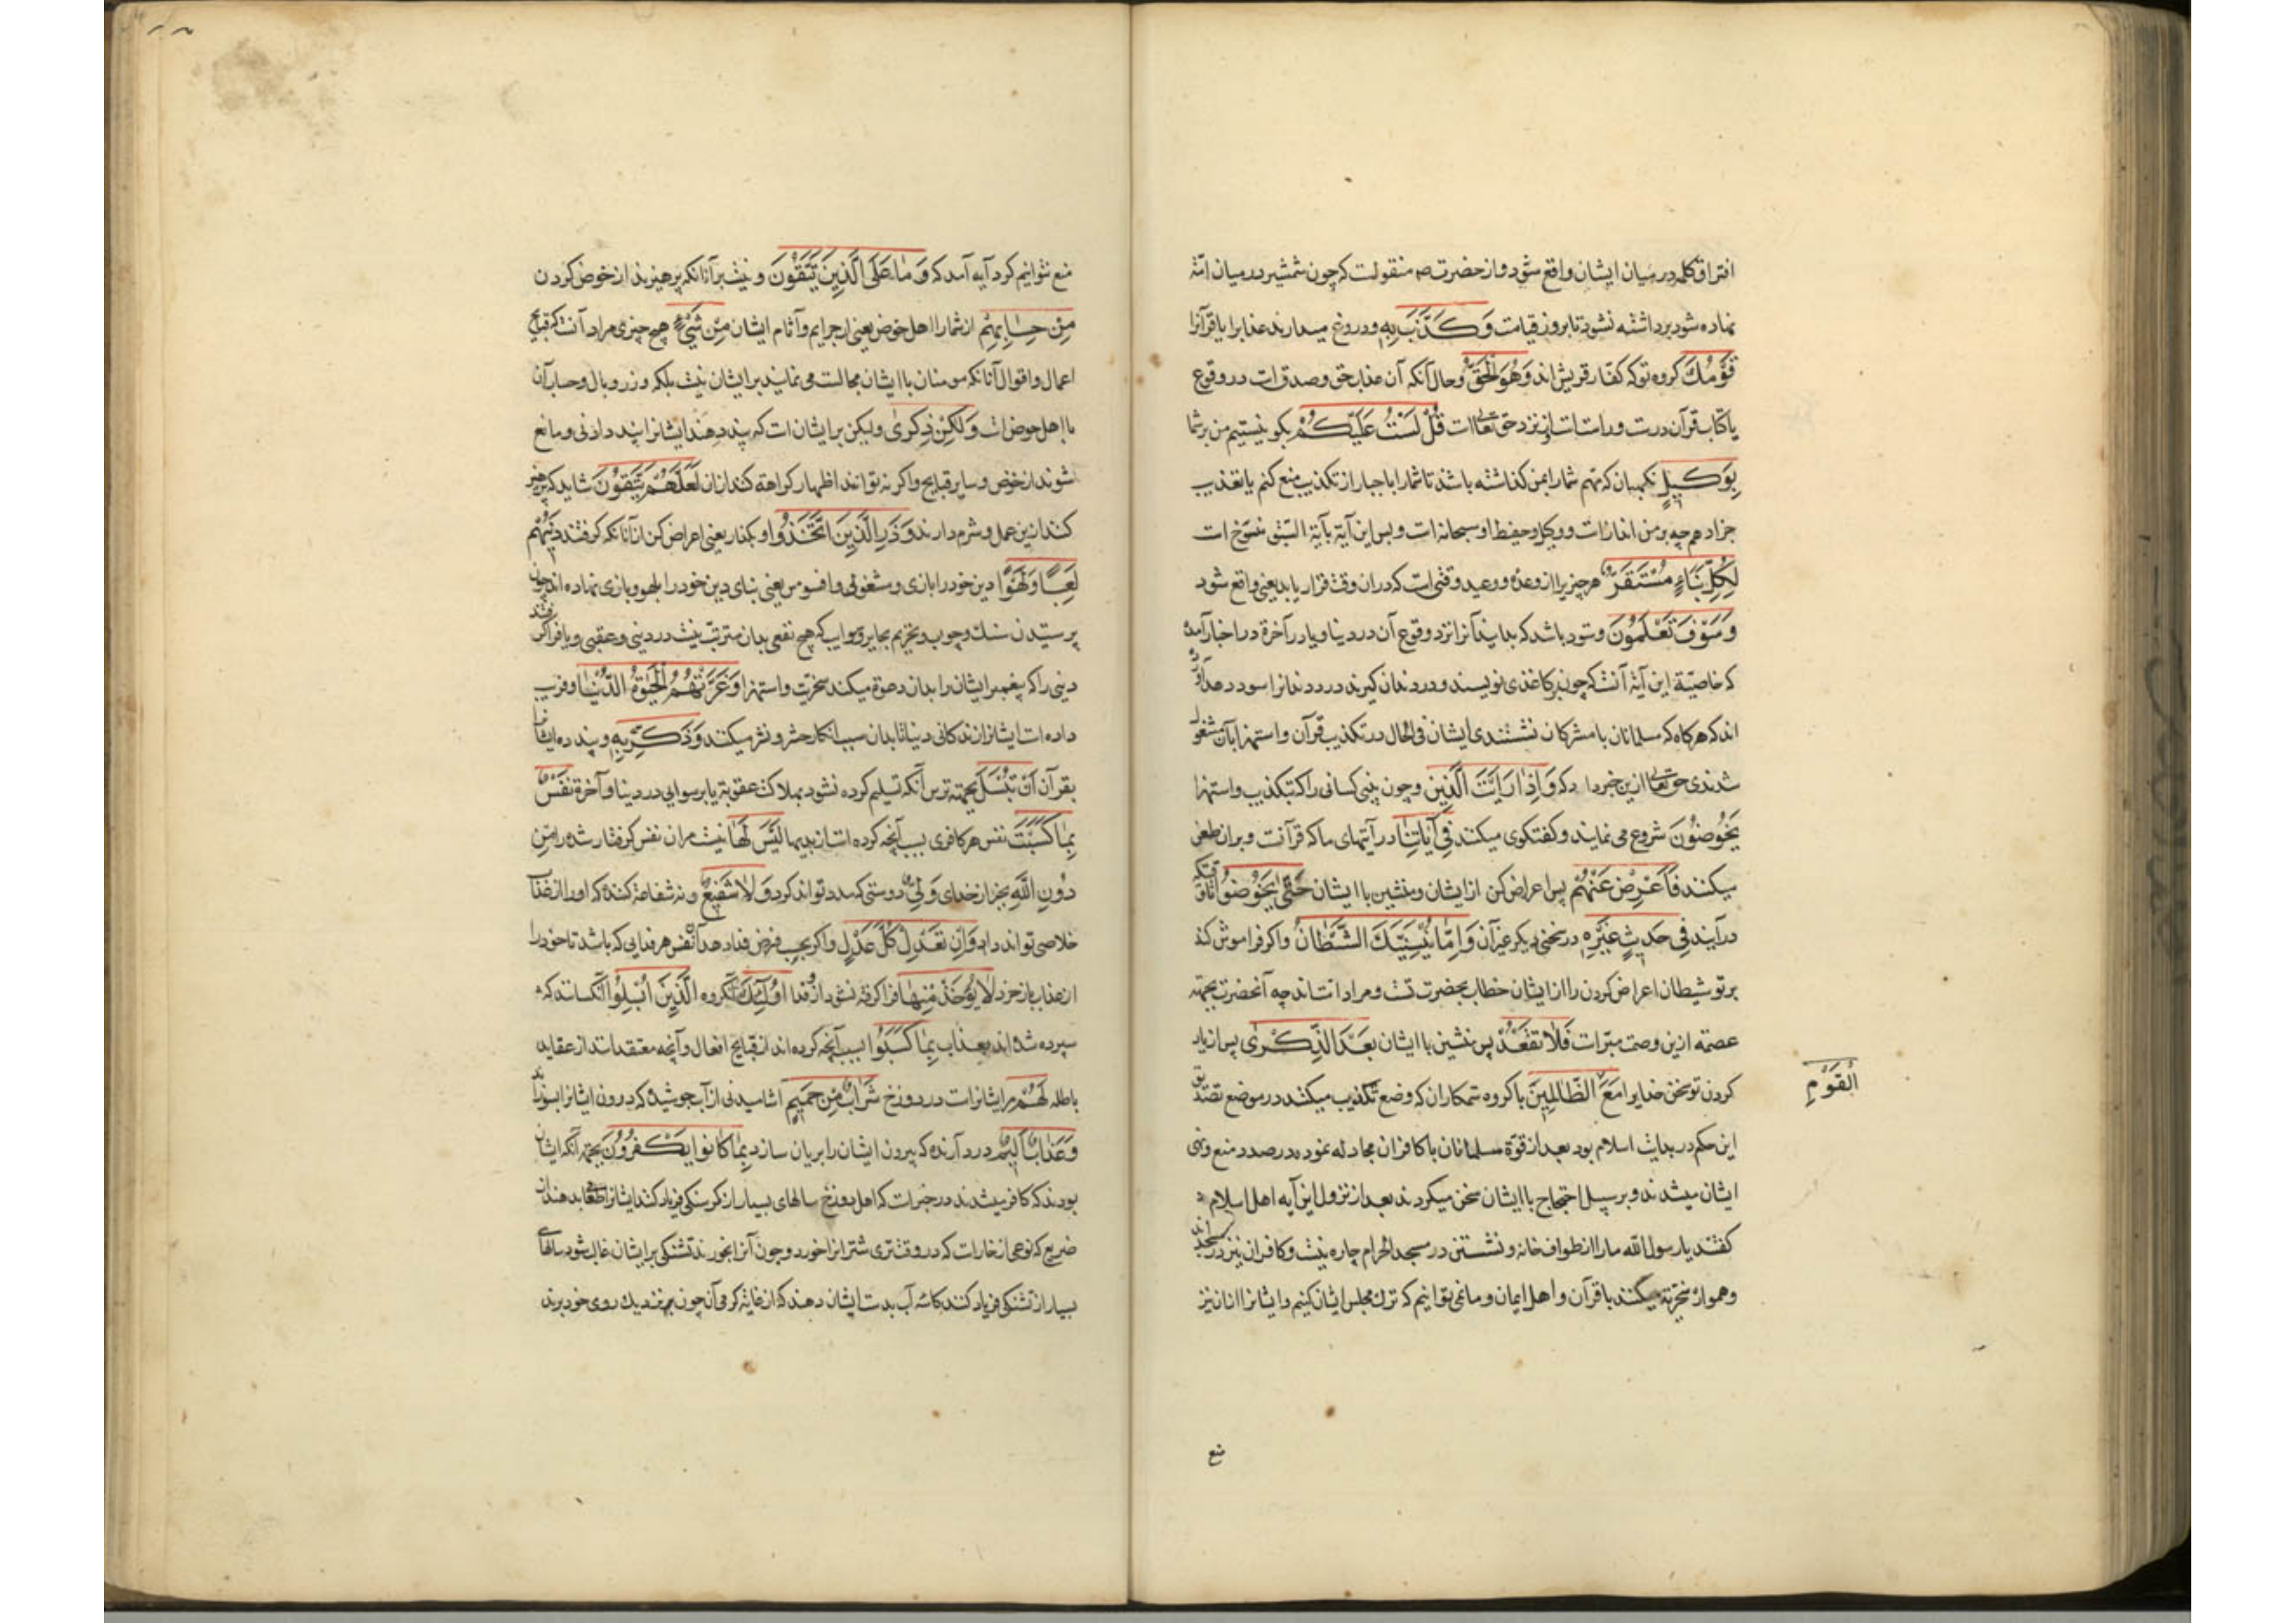 افتراق کلمه در میان ایشان واقع شود و از حضرت ص منقولست که چون شمشیر در میان امّة
نهاده شود برداشته نشود تا بروز قیامت وَكَذَّبَ بِهِ و دروغ میدارند عذابرا یا قرآنرا
قَوْمُكَ کروه تو که کفّار قریش اند وَهُوَ الْحَقُّ و حال آنکه آن عذاب حق و صدق است در وقوع
یا کتاب قرآن درست و راست است از نزد حق تعالی است قُلْ لَسْتُ عَلَيْكُمْ بکو نیستیم من بر شما
بِوَكِيلٍ نکهبان که مهم شما را بمن کذاشته باشد تا شما را باجبار از تکذیب منع کنم یا تعذیب
جزا دهم چه بر من انذارات و وکیل و حفیظ او سبحانه است و بس این آیة بآیة السّیف منسوخ است
لِكُلِّ نَبَاءٍ مُسْتَقَرٌّ هر چیزیرا از وعده و وعید وقتی است که دران وقت قرار یابد یعنی واقع شود
وَسَوْفَ تَعْلَمُونَ و زود باشد که بدانید آنرا نزد وقوع آن در دنیا و یا در آخرة در اخبار آمده
که خاصیّة این آیة آنست که چون بر کاغذی نویسند و در دندان کیرند درد دندانرا سود دهد آورده
اند که هرکاه که مسلمانان با مشرکان نشستندی ایشان فی الحال در تکذیب قرآن و استهزا بآن مشغول
شدندی حق تعالی ازین خبر داد که وَاِذَا رَاَيْتَ الَّذِينَ و چون بینی کسانی را که بتکذیب و استهزا
يَخُوضُونَ شروع می نمایند و کفتکوی میکنند فِي آيَاتِنَا در آیتهای ما که قرآنست و بران طعن
میکنند فَاَعْرِضْ عَنْهُمْ پس اعراض کن از ایشان و منشین با ایشان حَتَّى يَخُوضُوا تا وقتیکه
درآیند فِي حَدِيثٍ غَيْرِهِ در سخنی دیکر غیر آن وَاِمَّا يُنْسِيَنَّكَ الشَّيْطَانُ و اکر فراموش کند
بر تو شیطان اعراض کردن را از ایشان خطاب بحضرت است و مراد امّت اند چه آنحضرت بجهة
عصمة ازین وصمت مبرّاست فَلَا تَقْعُدْ پس منشین با ایشان بَعْدَ الذِّكْرَى پس از یاد
الْقَوْمِ
کردن تو سخن خدایرا مَعَ الظَّالِمِينَ با کروه ستمکاران که وضع تکذیب میکنند در موضع تصدیق
این حکم در بدایت اسلام بود بعد از قوّة مسلمانان با کافران مجادله نموده در صدد منع و نهی
ایشان میشدند و بر سبیل احتجاج با ایشان سخن میکردند بعد از نزول این آیه اهل اسلام
کفتند یا رسول الله ما را از طواف خانه و نشستن در مسجد الحرام چاره نیست و کافران نیز در مسجد اند
و هموار سخریّة میکنند با قرآن و اهل ایمان و ما نمی توانیم که ترک مجلس ایشان کنیم و ایشانرا از آن نیز
منع
منع نتوانیم کرد آیه آمد که وَمَا عَلَى الَّذِينَ يَتَّقُونَ و نیست بر آنانکه پرهیزند از خوض کردن
مِنْ حِسَابِهِمْ از شمار اهل خوض یعنی از جرایم و آثام ایشان مِنْ شَيْءٍ هیچ چیزی مراد آنست که قبایح
اعمال و اقوال آنانکه مومنان با ایشان مجالست می نمایند بر ایشان نیست بلکه وزر و وبال و حساب آن
با اهل خوض است وَلَكِنْ ذِكْرَى ولیکن بر ایشان است که پند دهند ایشانرا پند دادنی و مانع
شوند از خوض و سایر قبایح و اکر نه توانند اظهار کراهة کنند از آن لَعَلَّهُمْ يَتَّقُونَ شاید که پرهیز
کنند ازین عمل و شرم دارند وَذَرِ الَّذِينَ اتَّخَذُوا و بکذار یعنی اعراض کن از آنانکه کرفتند دِينَهُمْ
لَعِبًا وَلَهْوًا دین خود را بازی و مشغولی و افسوس یعنی بنای دین خود را بلهو و بازی نهاده اند چون
پرستیدن سنک و چوب و تحریم بحایر و سوایب که هیچ نفعی بدان مترتّب نیست در دنیی و عقبی و یا فرا کرفتند
دینی را که پیغمبر ایشان را بدان دعوة میکند سخریّت و استهزا وَغَرَّتْهُمُ الْحَيٰوةُ الدُّنْيَا و فریب
داده است ایشانرا زندکانی دنیا تا بدان سبب انکار حشر و نشر میکنند وَذَكِّرْ بِهِ و پند ده ایشانرا
بقرآن اَنْ تُبْسَلَ بجهة ترس آنکه تسلیم کرده نشود بهلاک عقوبة یا برسوایی در دنیا و آخرة نَفْسٌ
بِمَا كَسَبَتْ نفس هر کافری بسبب آنچه کرده است از بدیها لَيْسَ لَهَا نیست مران نفس کرفتار شده را مِنْ
دُونِ اللَّهِ بجز از خدای وَلِيٌّ دوستی که مدد تواند کرد وَلَا شَفِيعٌ و نه شفاعة کننده که او را از عذاب
خلاصی تواند داد وَاِنْ تَعْدِلْ كُلَّ عَدْلٍ و اکر بحسب فرض فدا دهد آن نفس هر فدایی که باشد تا خود را
از عذاب باز خرد لَا يُؤْخَذْ مِنْهَا فرا کرفته نشود از و فدا اُولٰئِكَ آنکروه الَّذِينَ اُبْسِلُوا آنکسانند که
سپرده شده اند بعذاب بِمَا كَسَبُوا بسبب آنچه کرده اند از قبایح افعال و آنچه معتقد است از عقاید
باطله لَهُمْ مر ایشانراست در دوزخ شَرَابٌ مِنْ حَمِيمٍ آشامیدنی از آب جوشیده که درون ایشانرا بسوزاند
وَعَذَابٌ اَلِيمٌ درد آرنده که بیرون ایشان را بریان سازد بِمَا كَانُوا يَكْفُرُونَ بجهة آنکه ایشان
بودند که کافر میشدند در خبر است که اهل دوزخ سالهای بسیار از کرسنکی فریاد کنند ایشانرا طعام دهند از
ضریع که نوعی از خارست که در وقت تری شتر انرا خورد و چون آنرا بخورند تشنکی بر ایشان غالب شود سالهای
بسیار از تشنکی فریاد کنند کاسه آب بدست ایشان دهند که از غایة کرمی آن چون بنزدیک روی خود برند